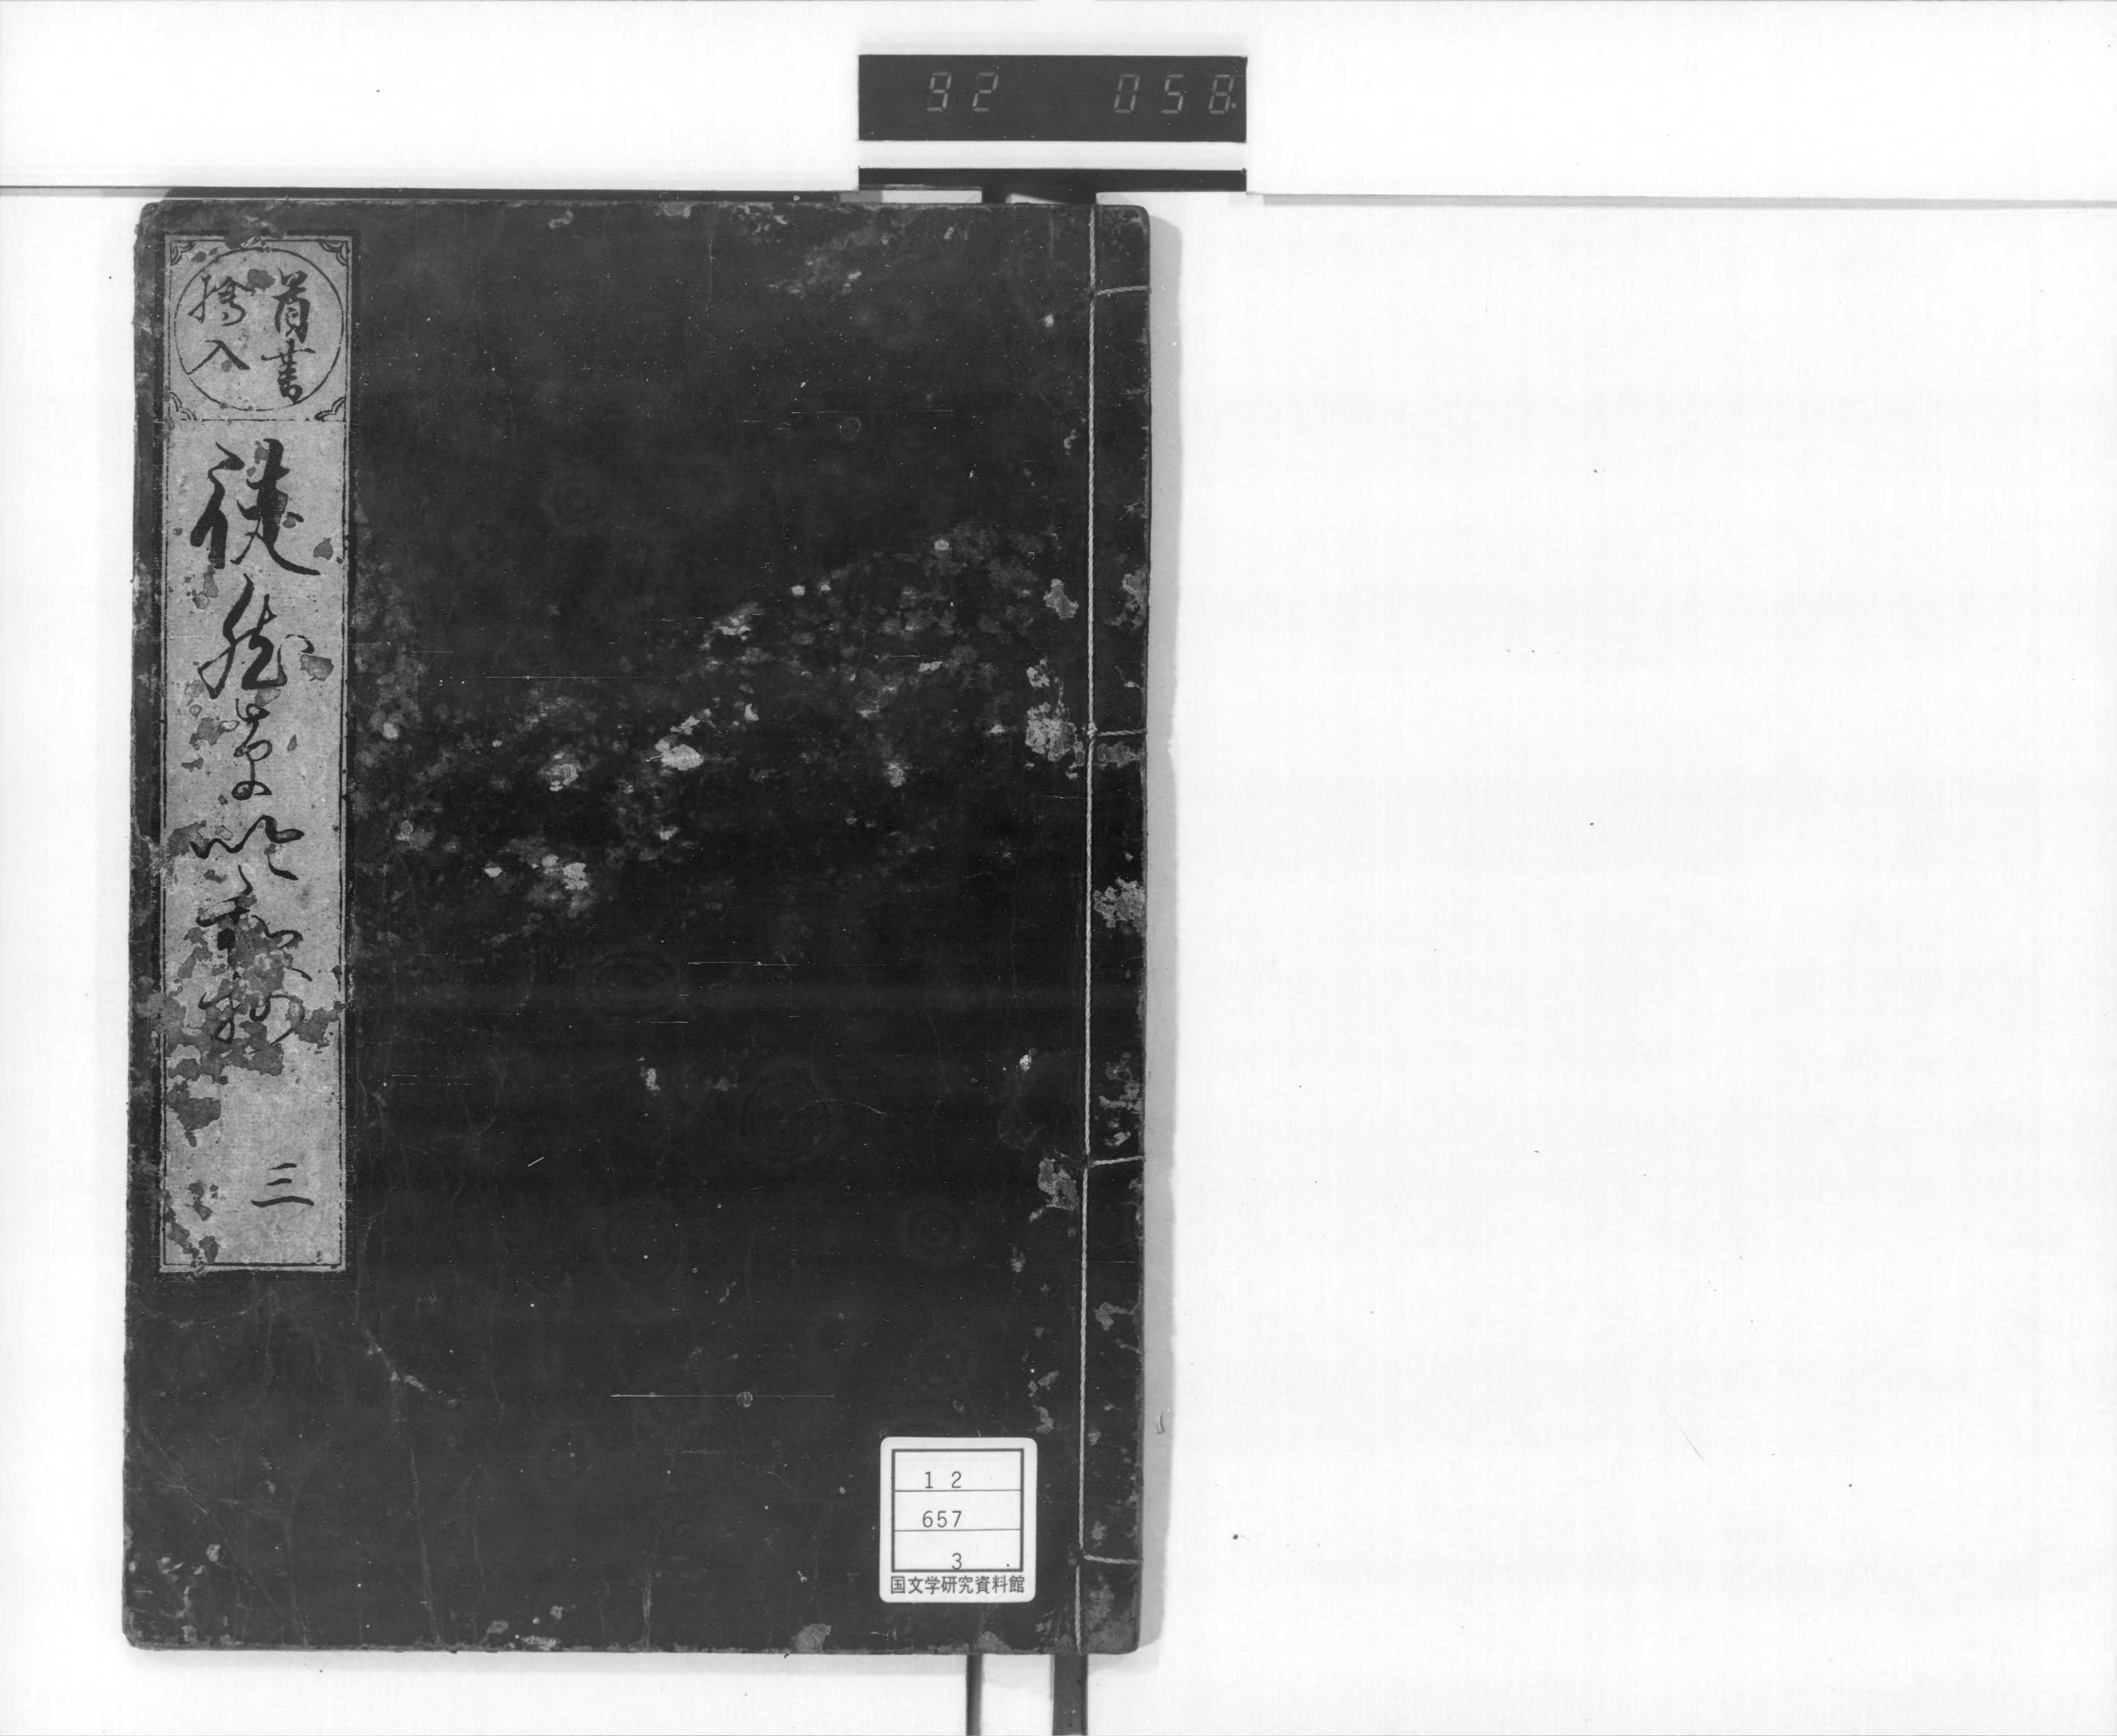 92 058
首書
繪入
徒然草吟和抄
三
12
657
3
国文学研究資料館